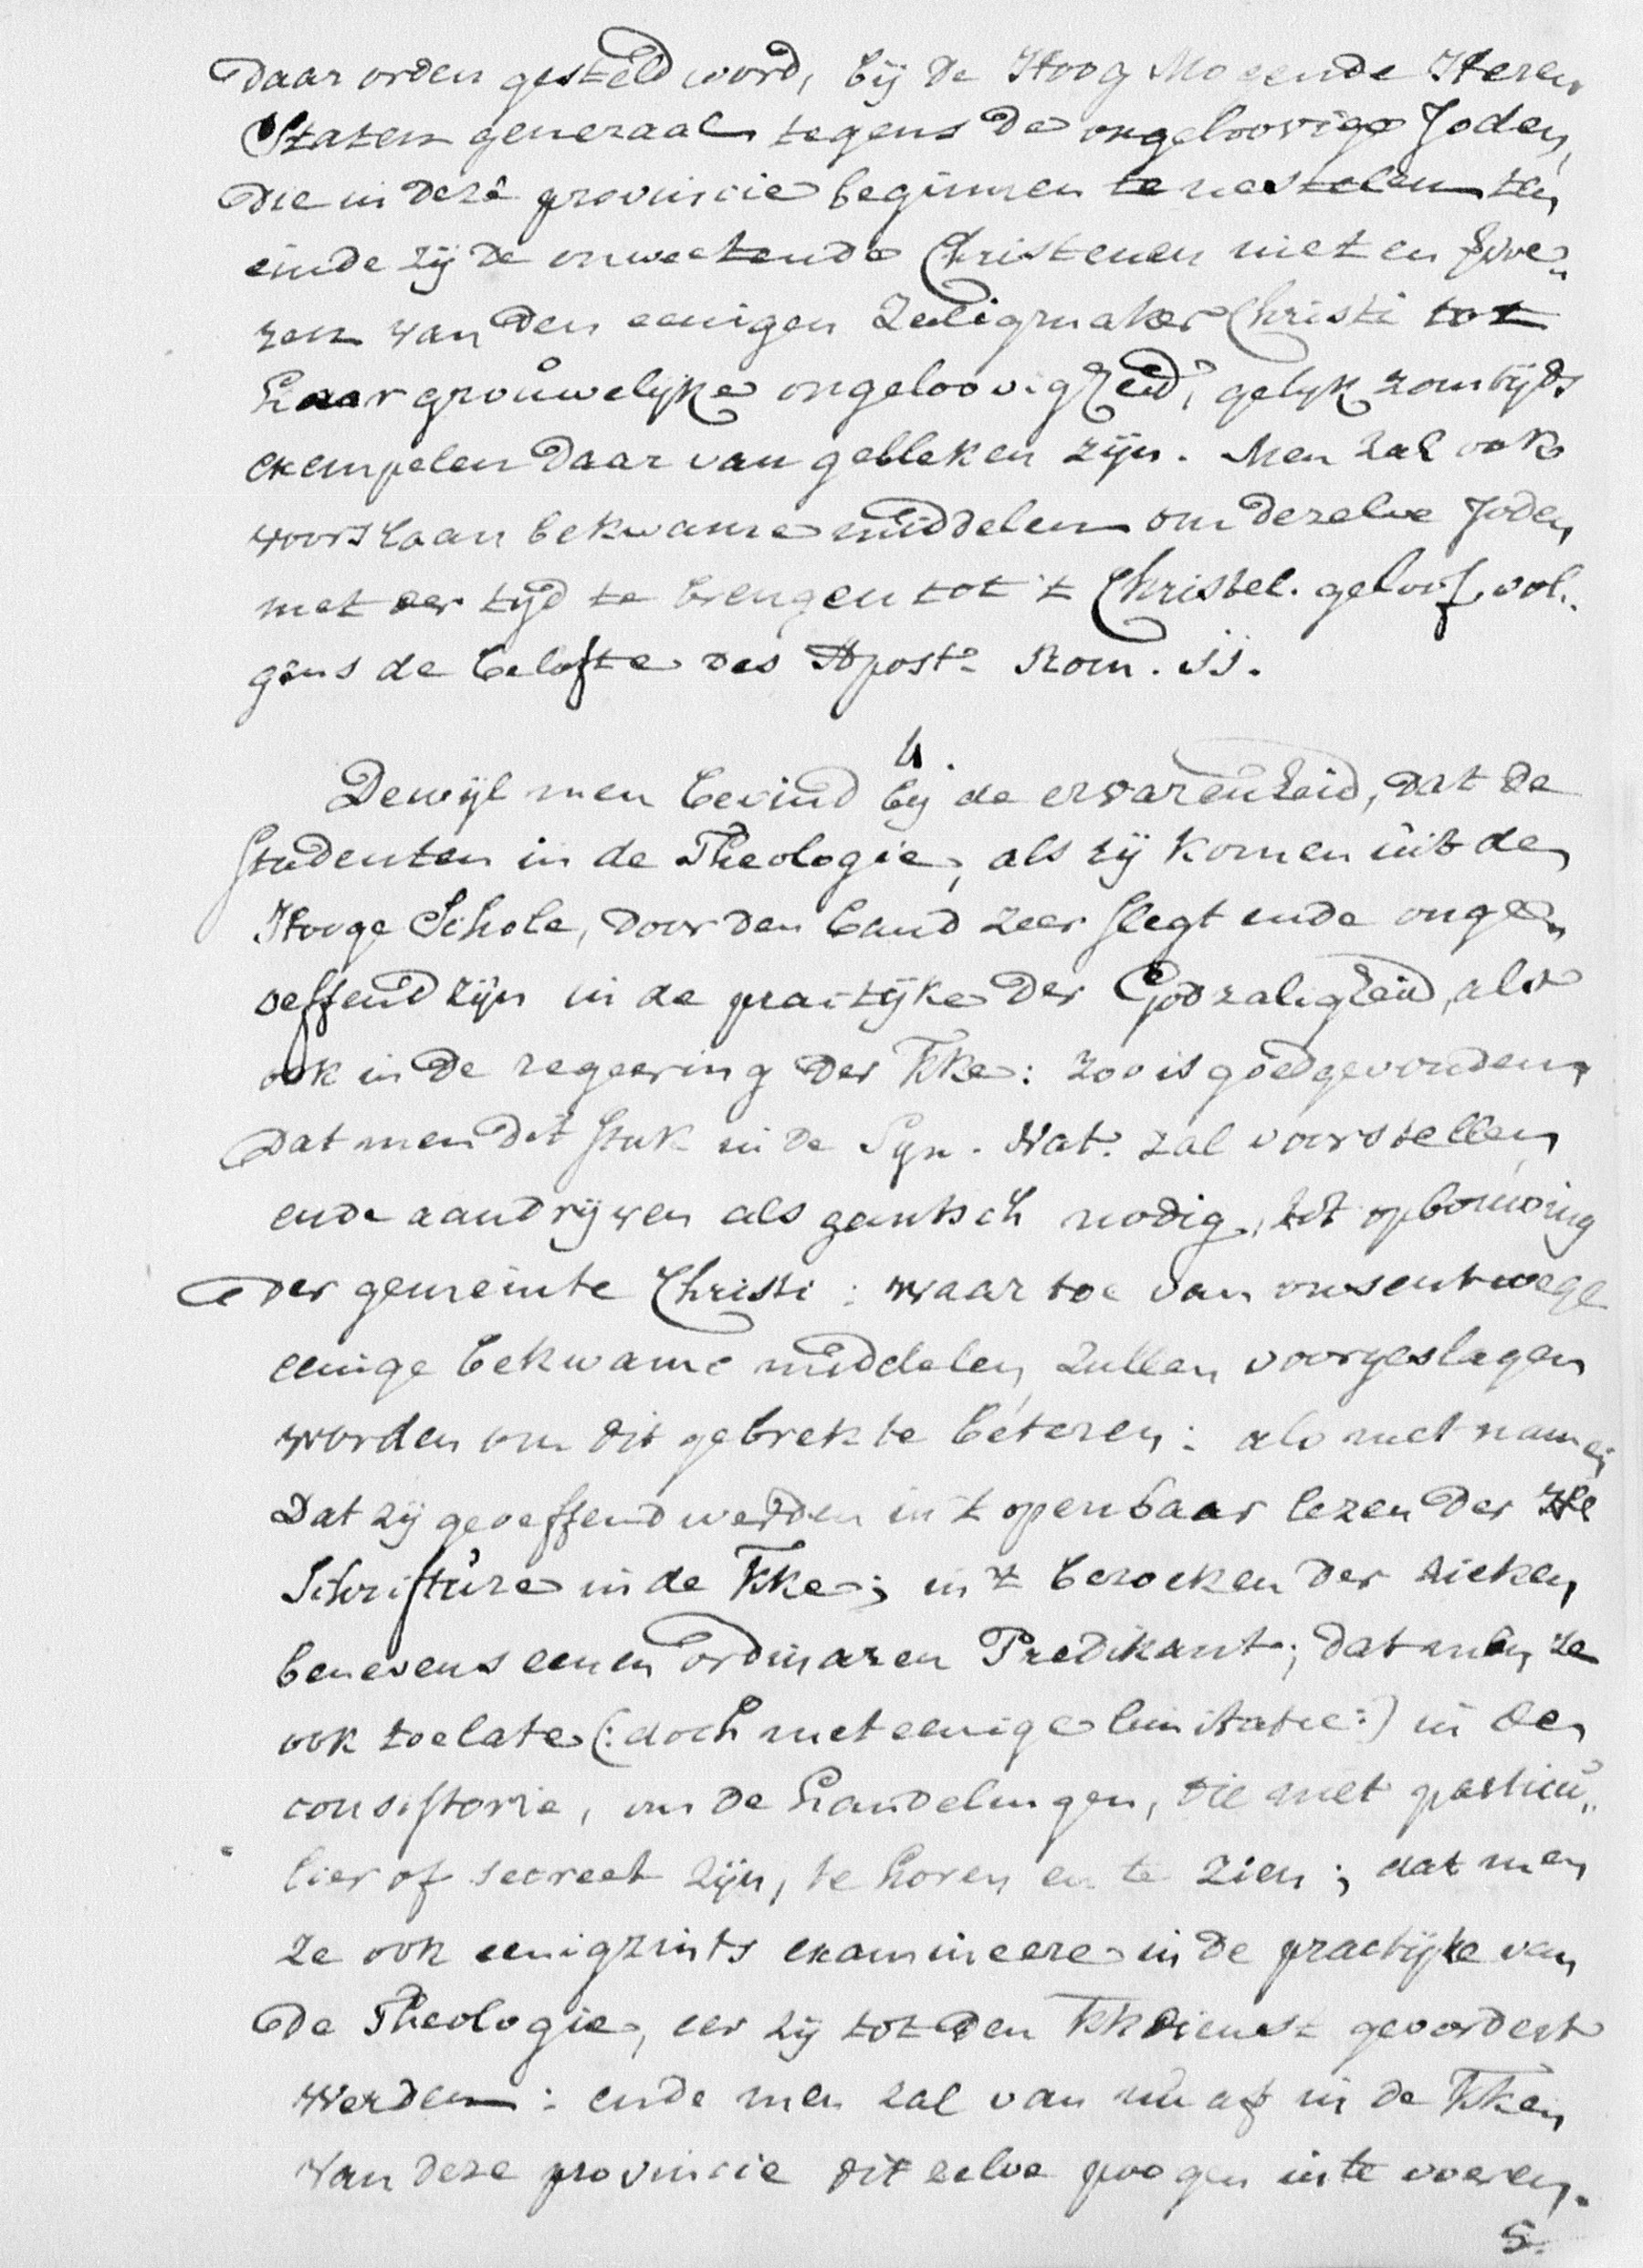 daar orden gesteld word, bij de Hoog Mogende Heren
Staten generaal tegens de ongeloovige Joden,
die in deze provincie beginnen te nestelen ten
einde zij de onweetende Christenen niet en
van den eenigen Zaligmaker Christi tot
haar grouwelijke ongeloovigheid, gelijk zomtijds
exempelen daar van gebleken zijn. Men zal ook
voorslaan bekwame middelen om dezelve Joden
met der tijd te brengen tot 't Christel. geloof, vol„
gens de belofte des Aposts Rom. 11.
4.
Dewijl men bevind bij de ervarenheid, dat de
Studenten in de Theologie, als zij komen uit de
Hooge Schole, door den band zeer slegt ende onge„
oeffend zijn in de practijke der Godzaligheid, als
ook in de regeering der Kke: zoo is goedgevonden
dat men dit stuk in de Syn. Nat. zal voorstellen
ende aandrijven als gantsch nodig, tot opbouwing
der gemeinte Christi: waar toe van onsentwege
eenige bekwame middelen zullen voorgeslagen
worden om dit gebrek te beteren: als met namen
Dat zij geoeffend werden in 't openbaar lezen der He
Schrifture in de Kke; in 't bezoeken der zieken
benevens eenen ordinaren Predikant; dat men ze
ook toelate (: doch met eenige limitatie:) in de
consistorie, om de handelingen, die niet particu„
lier of secreet zijn, te horen en te zien; dat men
ze ook eenigzints examineere in de practijke van
de Theologie, eer zij tot den Kkdienst gevordert
werden: ende men zal van nu af in de Kken
van deze provincie dit zelve poogen in te voeren.
5.